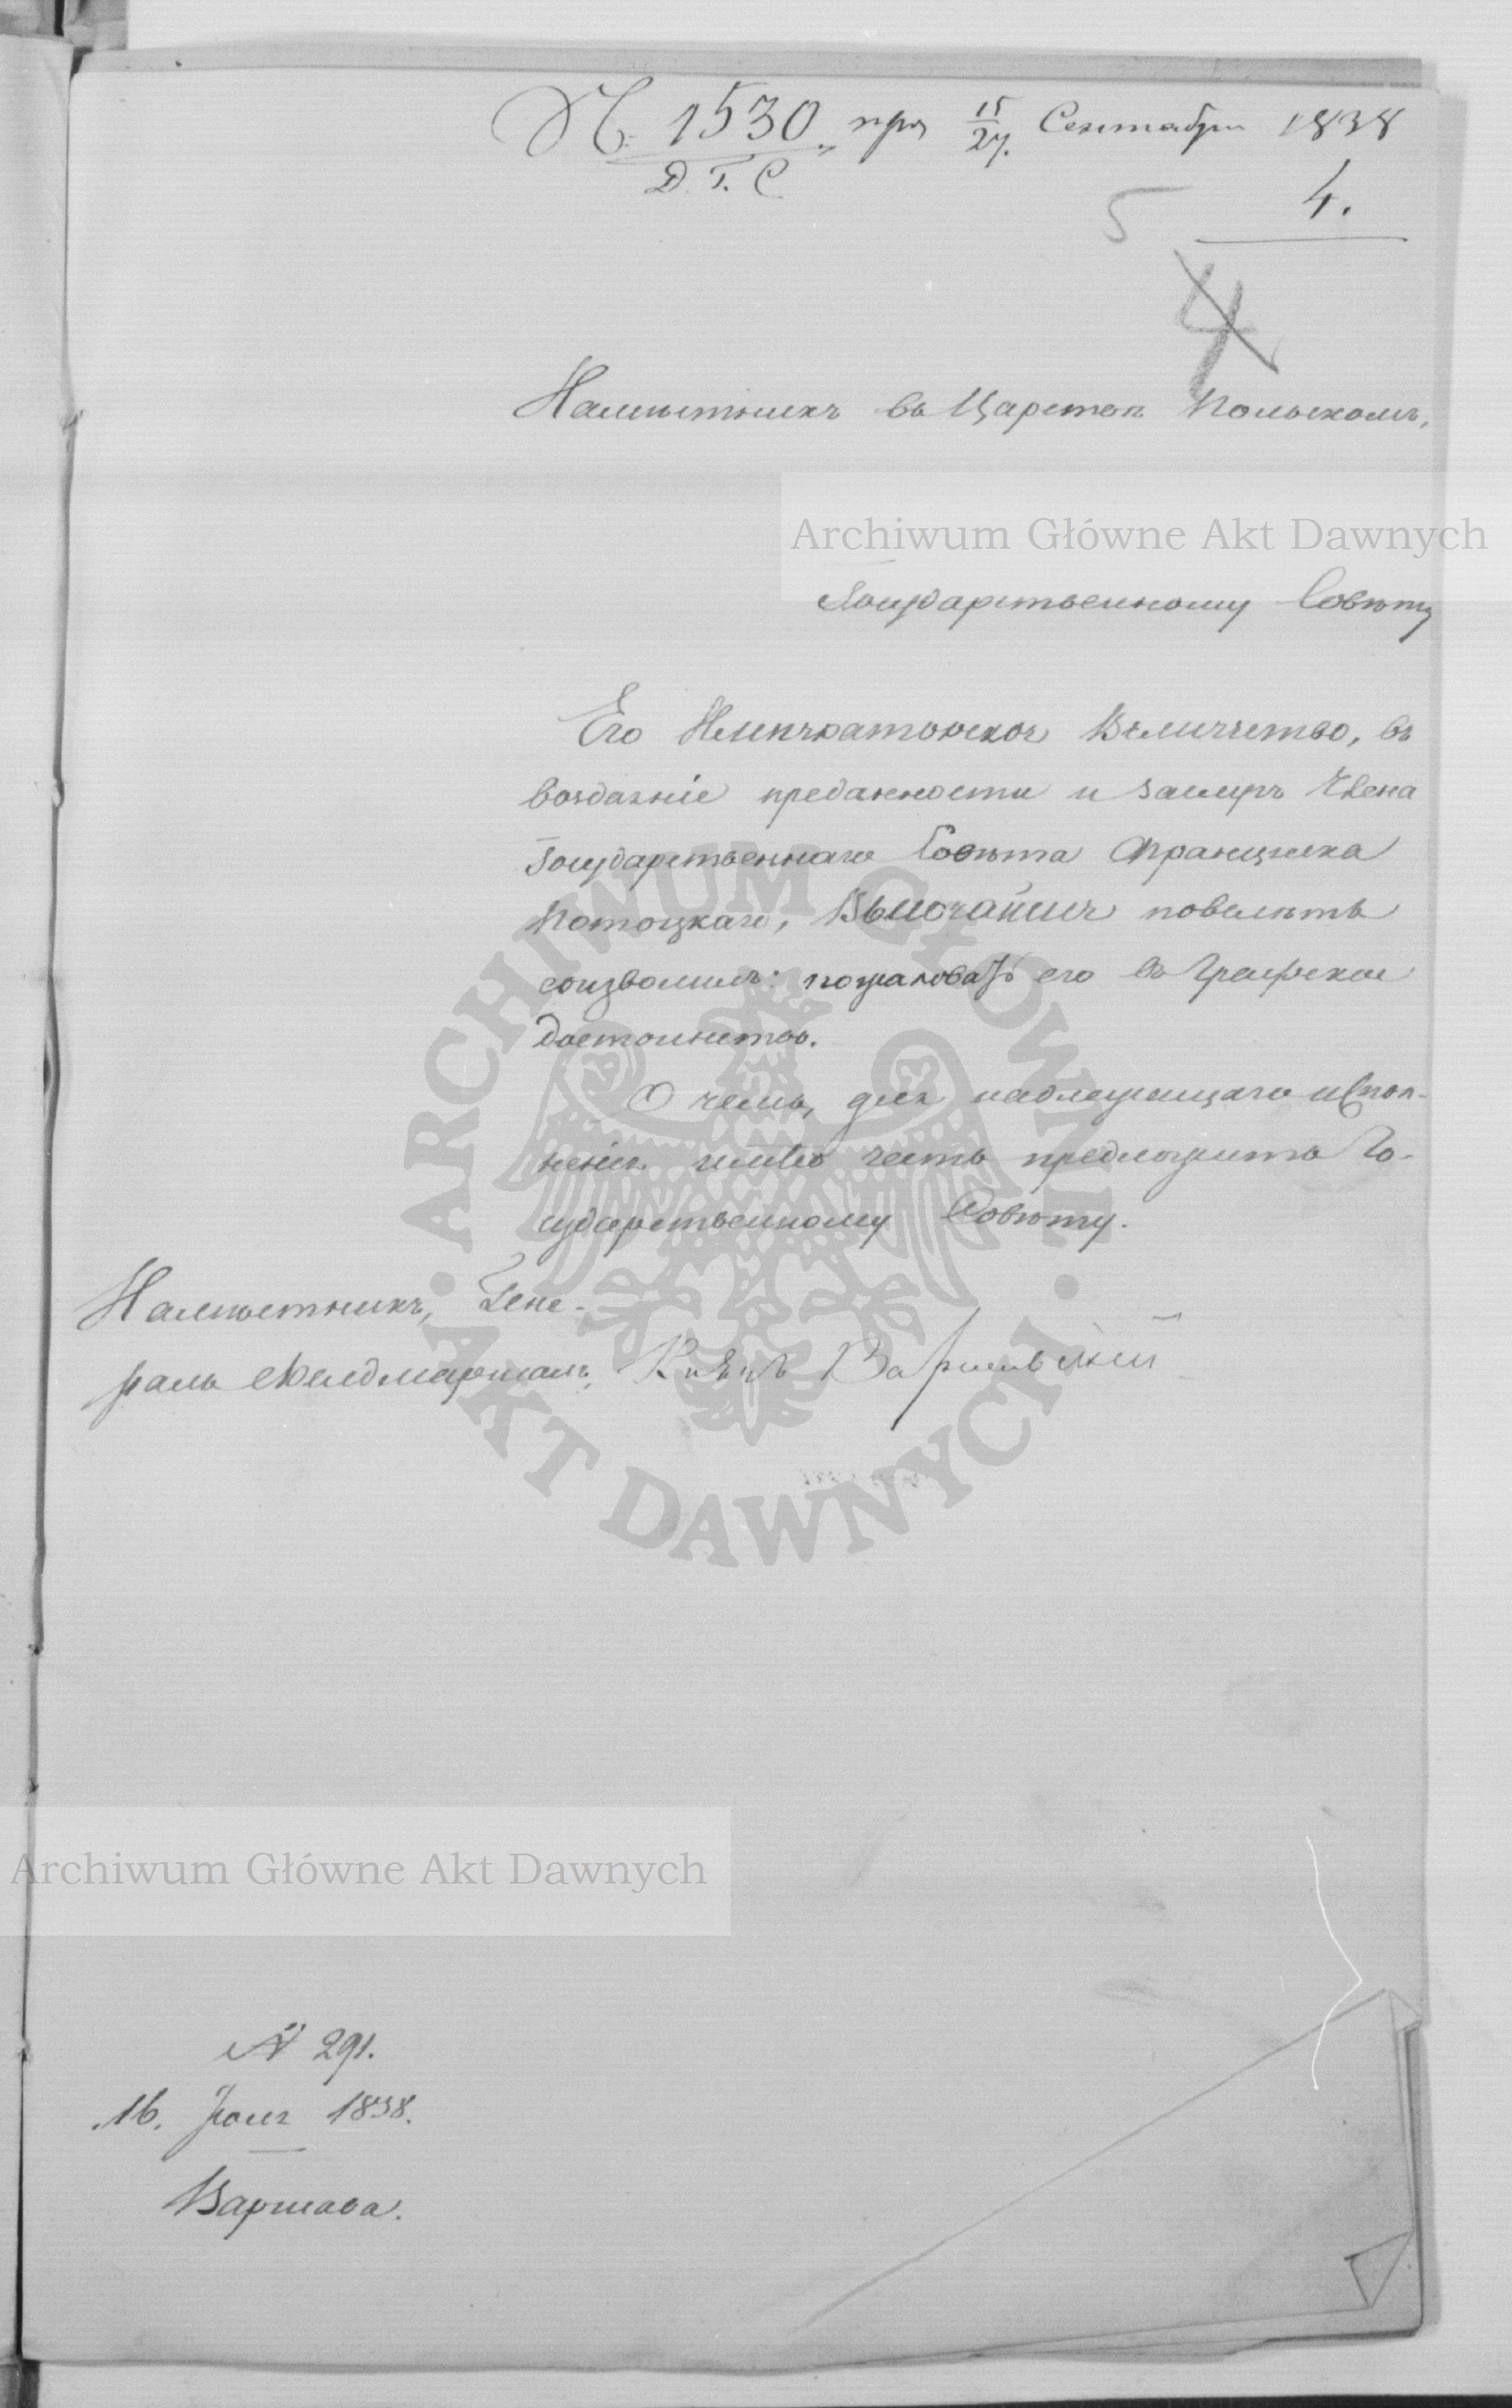 № 1530. пря 15/27. Сентября 1838
Д. Г. С.
5 4.
4
Намѣстникъ въ Царствѣ Польскомъ,
Archiwum Główne Akt Dawnych
Государственному Совѣту
Его Императорское Величество, въ
воздаяніе преданности и заслугъ Члена
Государственнаго Совѣта Франциска
Потоцкаго, Высочайше повелѣть
соизволилъ: пожаловать его въ Графское
достоинство.
О чемъ, для надлежащаго испол-
ненія имѣю честь предложить Го-
сударственному Совѣту.
Намѣстникъ, Гене-
ралъ Фельдмаршалъ, Князь Варшавскій
ARCHIWUM GŁÓWNE AKT DAWNYCH
Archiwum Główne Akt Dawnych
№ 291.
16. Іюля 1838.
Варшава.